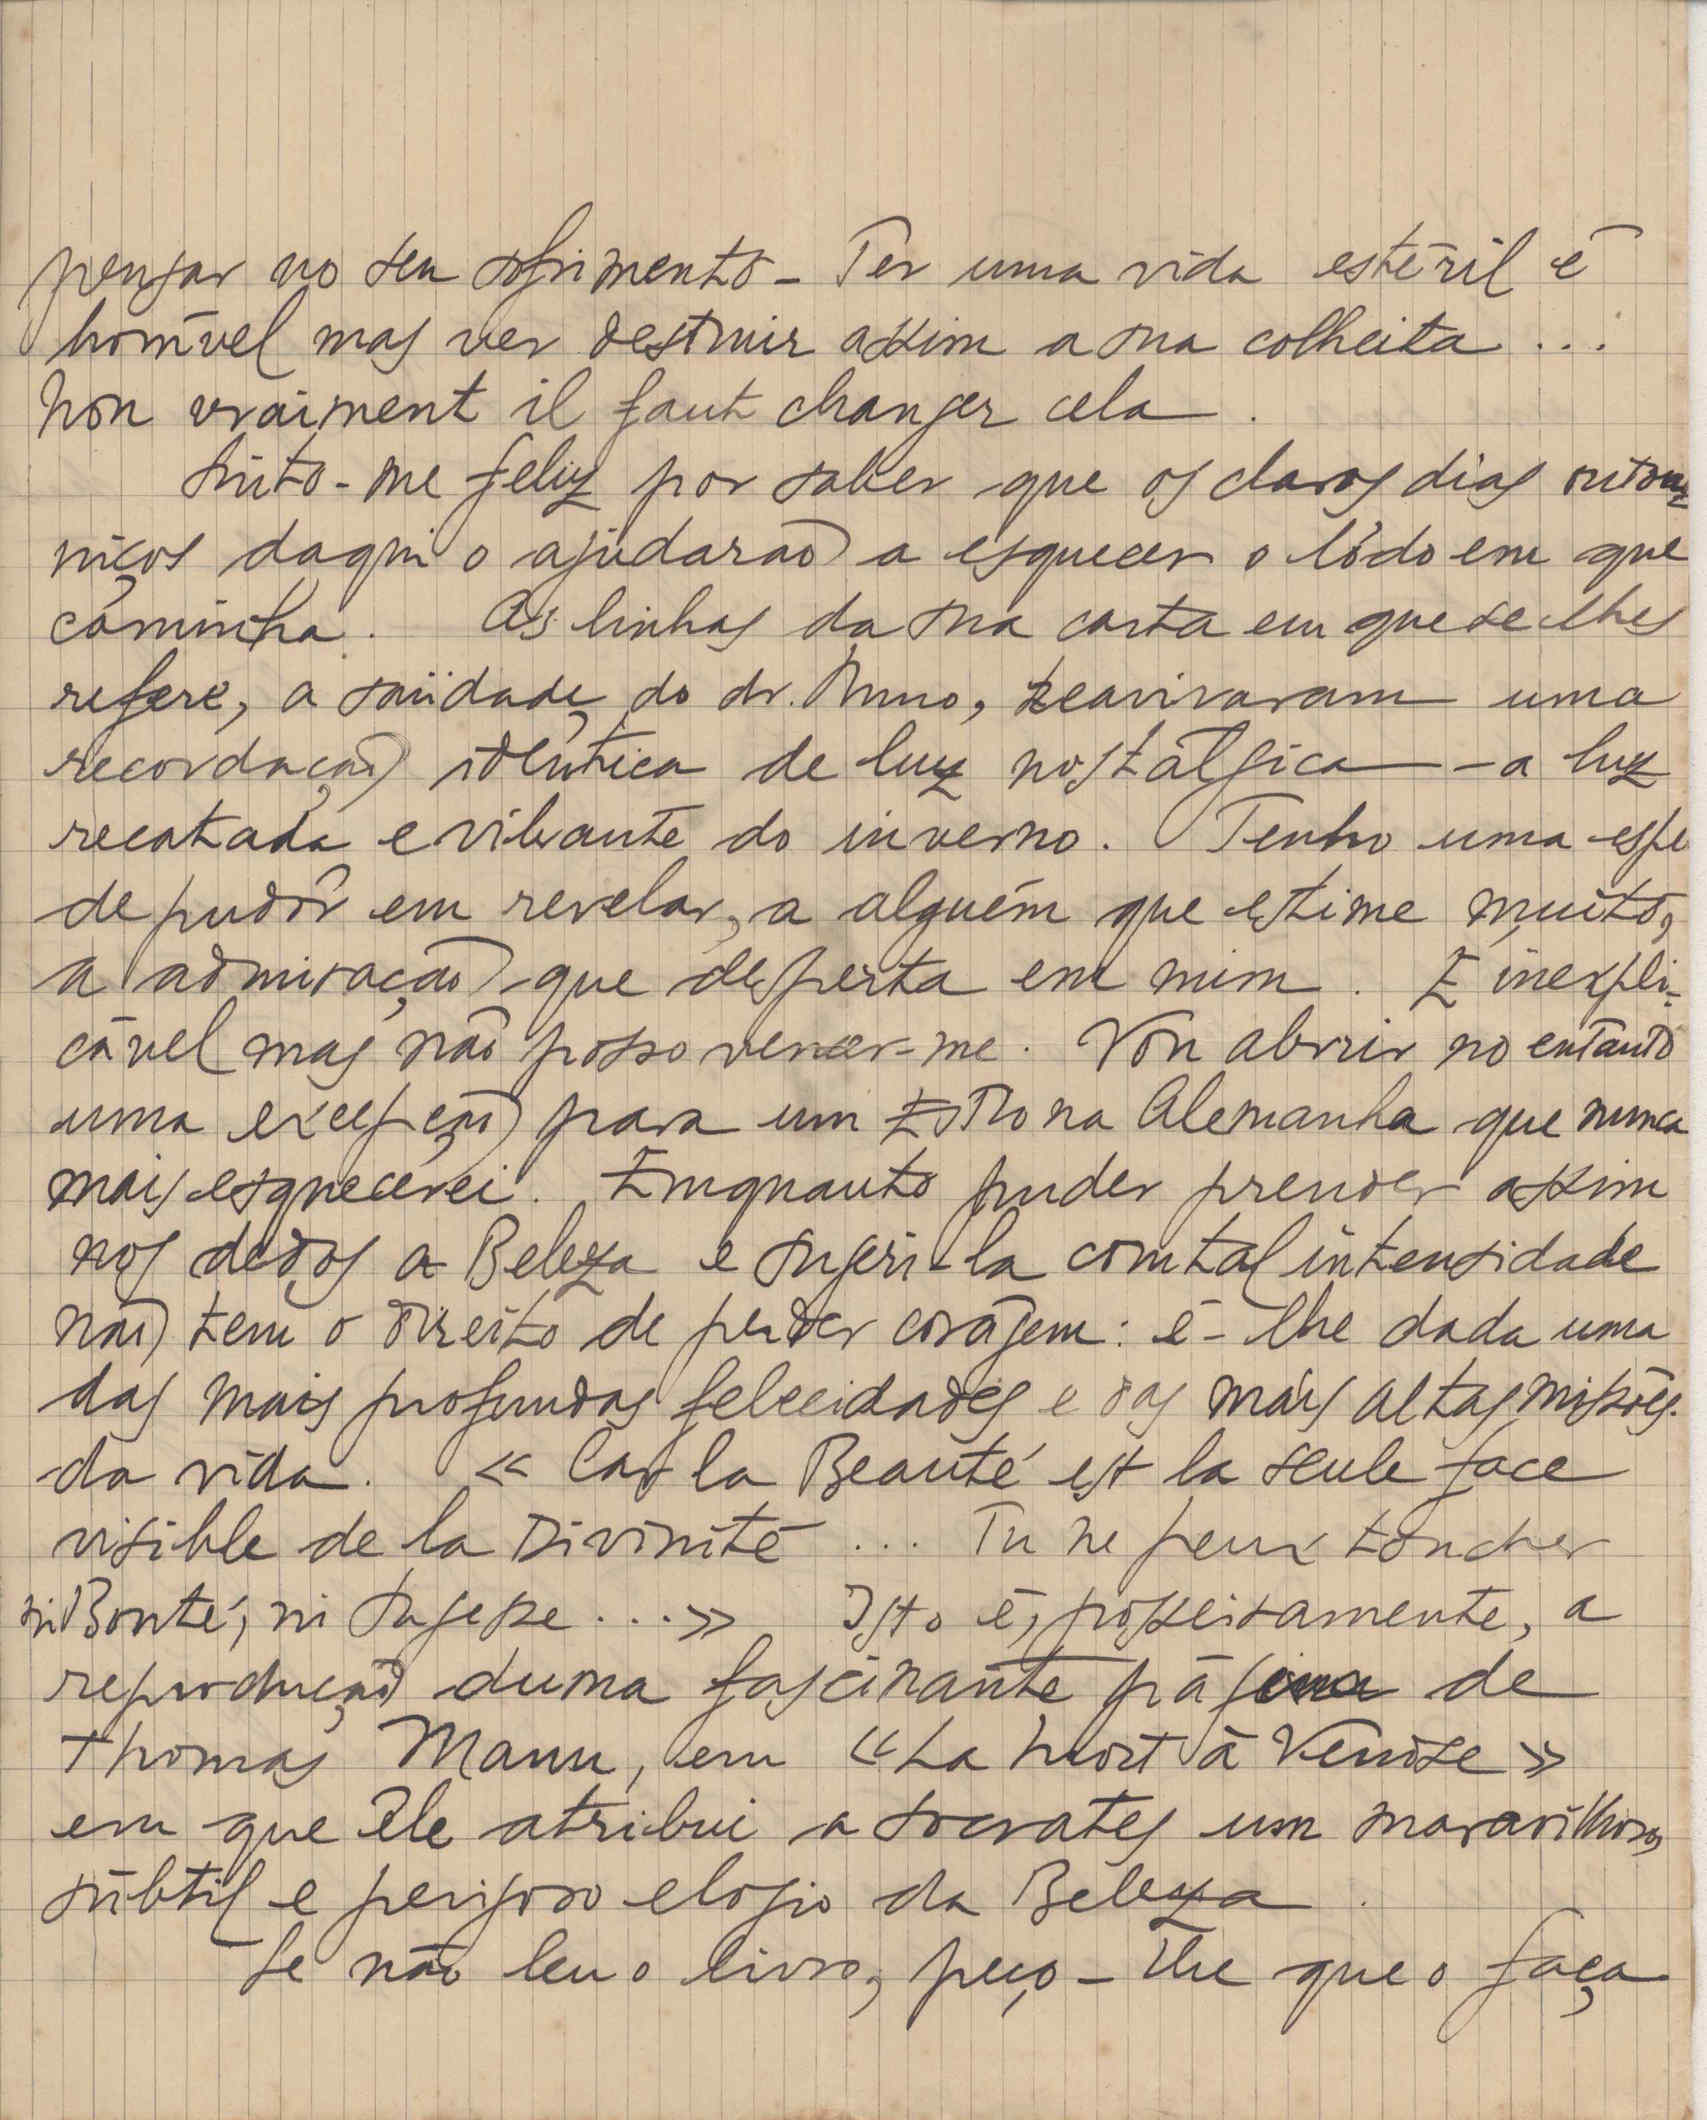 pensar no seu sofrimento – Ter uma vida estéril é
horrível mas ver destruir assim a sua colheita ...
Non vraiment il faut changer cela.
Sinto-me feliz por saber que os claros dias outom-
niços daqui o ajudarão a esquecer o lôdo em que
caminha. As linhas da sua carta em que se lhes
refere, a saüdade do dr. Nuno, reavivaram uma
recordação idêntica de luz nostálgica – a luz
recatada e vibrante do inverno. Tenho uma espe
de pudôr em revelar, a alguém que estime muito,
a admiração que desperta em mim. É inexpli-
cável mas não posso vencer-me. Vou abrir no entanto
uma excepção para um na Alemanha que nunca
mais esquecerei. Emquanto puder prender assim
nos dedos a Beleza e sugeri-la com tal intensidade
não tem o direito de perder corágem: é-lhe dada uma
das mais profundas felecidades e das mais altas missões
da vida. « Car la Beauté est la seule face
visible de la Divinité ... Tu ne peux toucher
ni Bonté, ni Sagesse ...» Isto é, grosseiramente, a
reprodução duma fascinante página de
Thomas Mann, em «La Mort à Venise»
em que êle atribui a Socrates um maravilhoso,
súbtil e perigoso elogio da Beleza.
Se não leu o livro, peço-lhe que o faça